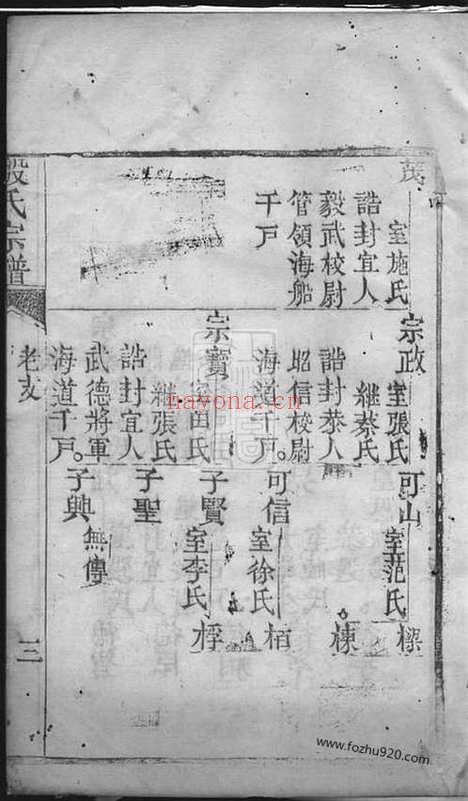 茂
室施氏
誥封宜人
毅武校尉
管領海船
千戶
宗政
室張氏
繼蔡氏
誥封恭人
昭信校尉
海道千戶。
宗寶
室田氏
繼張氏
誥封宜人
武德將軍
海道千戶。
可山
室范氏
可信
室徐氏
子賢
室李氏
子聖
子興
無傳
樑
棟
栢
桴
段氏宗譜
老支
三
nayona.cn
www.fozhu920.com